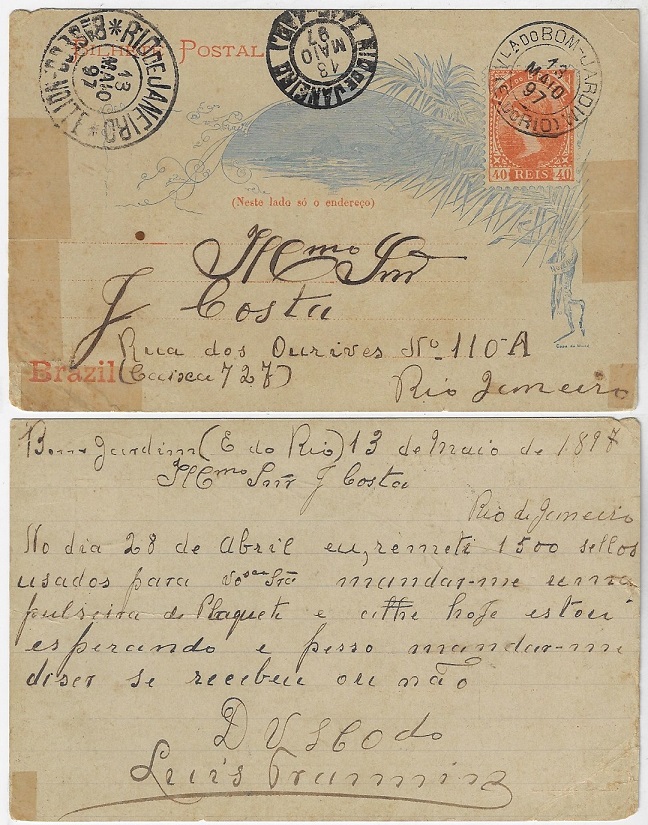 BILHETE POSTAL
RIO DE JANEIRO
13
MAIO
97
RIO DE JANEIRO
13
MAIO
97
VILA DO BOM-JARDIM
13
MAIO
97
(E. DO RIO)
40 REIS 40
(Neste lado só o endereço)
Illmo Snr
J Costa
Rua dos Ourives No 110-A
Brazil (Caixa 727)
Rio Janneiro
Bom Jardim (E do Rio) 13 de Maio de 1897
Illmo Snr J Costa
Rio de Janneiro
No dia 28 de Abril eu, remeti 1500 sellos
usados para mandar-me uma
pulseira de Plaquete e athe hoje estou
esperando e pesso mandar-me
diser se recebeu ou não
Luis